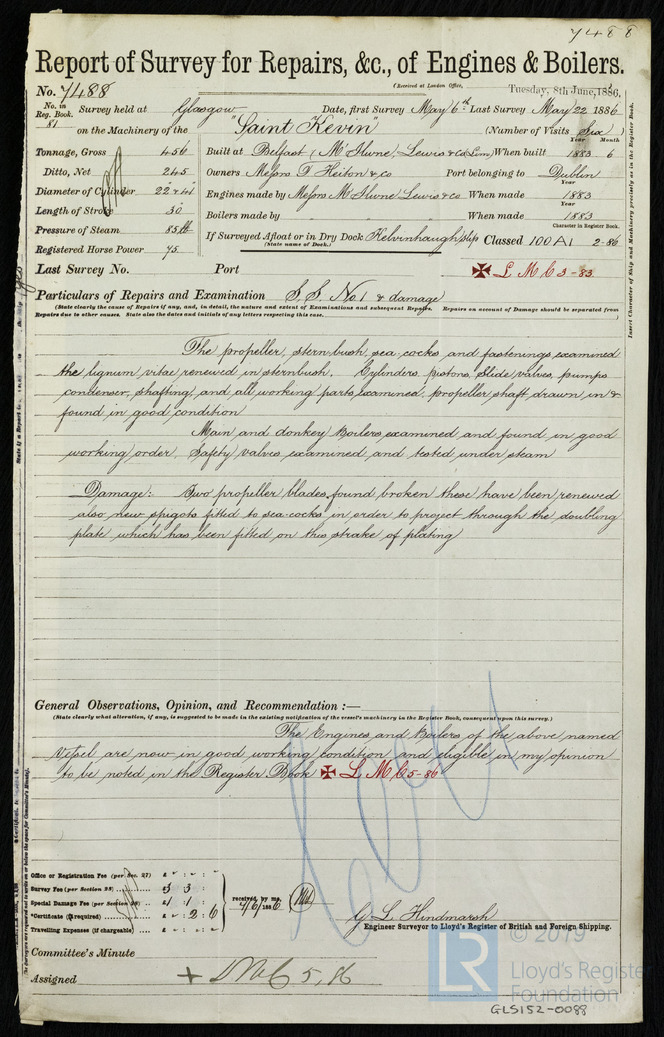 7488
Report of Survey for Repairs, &c., of Engines & Boilers.
(Received at London Office, Tuesday, 8th June, 1886,
No. 7488
No. in Reg. Book. 81 Survey held at Glasgow Date, first Survey May 6th Last Survey May 22 1886
on the Machinery of the "Saint Kevin" (Number of Visits Six)
Tonnage, Gross 456 Built at Belfast (McIlwne, Lewis & Co Lim) When built Year 1883 Month 6
Ditto, Net 245 Owners Messrs T Heiton & co Port belonging to Dublin
Diameter of Cylinder 22 & 41 Engines made by Messrs McIlwne Lewis & Co When made Year 1883
Length of Stroke 30 Boilers made by " " " When made Year 1883
Pressure of Steam 85 lb If Surveyed Afloat or in Dry Dock Kelvinhaugh slip Classed 100 A1 2-86
(State name of Dock.) Character in Register Book.
Registered Horse Power 75
Last Survey No. Port ✠ L M C 3-83
Particulars of Repairs and Examination S.S. No. 1 & damage
(State clearly the cause of Repairs if any, and, in detail, the nature and extent of Examinations and subsequent Repairs. Repairs on account of Damage should be separated from
Repairs due to other causes. State also the dates and initials of any letters respecting this case.
The propeller, sternbush, sea cocks and fastenings examined
the lignum vitae renewed in sternbush. Cylinders pistons, slide valves, pumps
condenser, shafting, and all working parts examined, propeller shaft drawn in &
found in good condition
Main and donkey Boilers examined and found in good
working order. Safety valves examined and tested under steam
Damage: Two propeller blades found broken these have been renewed
also new spigots fitted to sea-cocks in order to project through the doubling
plate which has been fitted on this strake of plating
General Observations, Opinion, and Recommendation :—
(State clearly what alteration, if any, is suggested to be made in the existing notification of the vessel's machinery in the Register Book, consequent upon this survey.)
The Engines and Boilers of the above named
Vessel are now in good working condition and eligible in my opinion
to be noted in the Register Book ✠ L M C 5-86
Office or Registration Fee (per Sec. 27) £ : :
Survey Fee (per Section 28) £ 3 : 3 :
Special Damage Fee (per Section 28) £ 1 : 1 :
*Certificate (if required) £ : 2 : 6
Travelling Expenses (if chargeable) £ : :
received by me, 7/6/1886
G L Hindmarsh
Engineer Surveyor to Lloyd's Register of British and Foreign Shipping.
Committee's Minute
Assigned + LMC 5,86
Insert Character of Ship and Machinery precisely as in the Register Book.
© 2019
LR
Lloyd's Register
Foundation
GLS152-0088